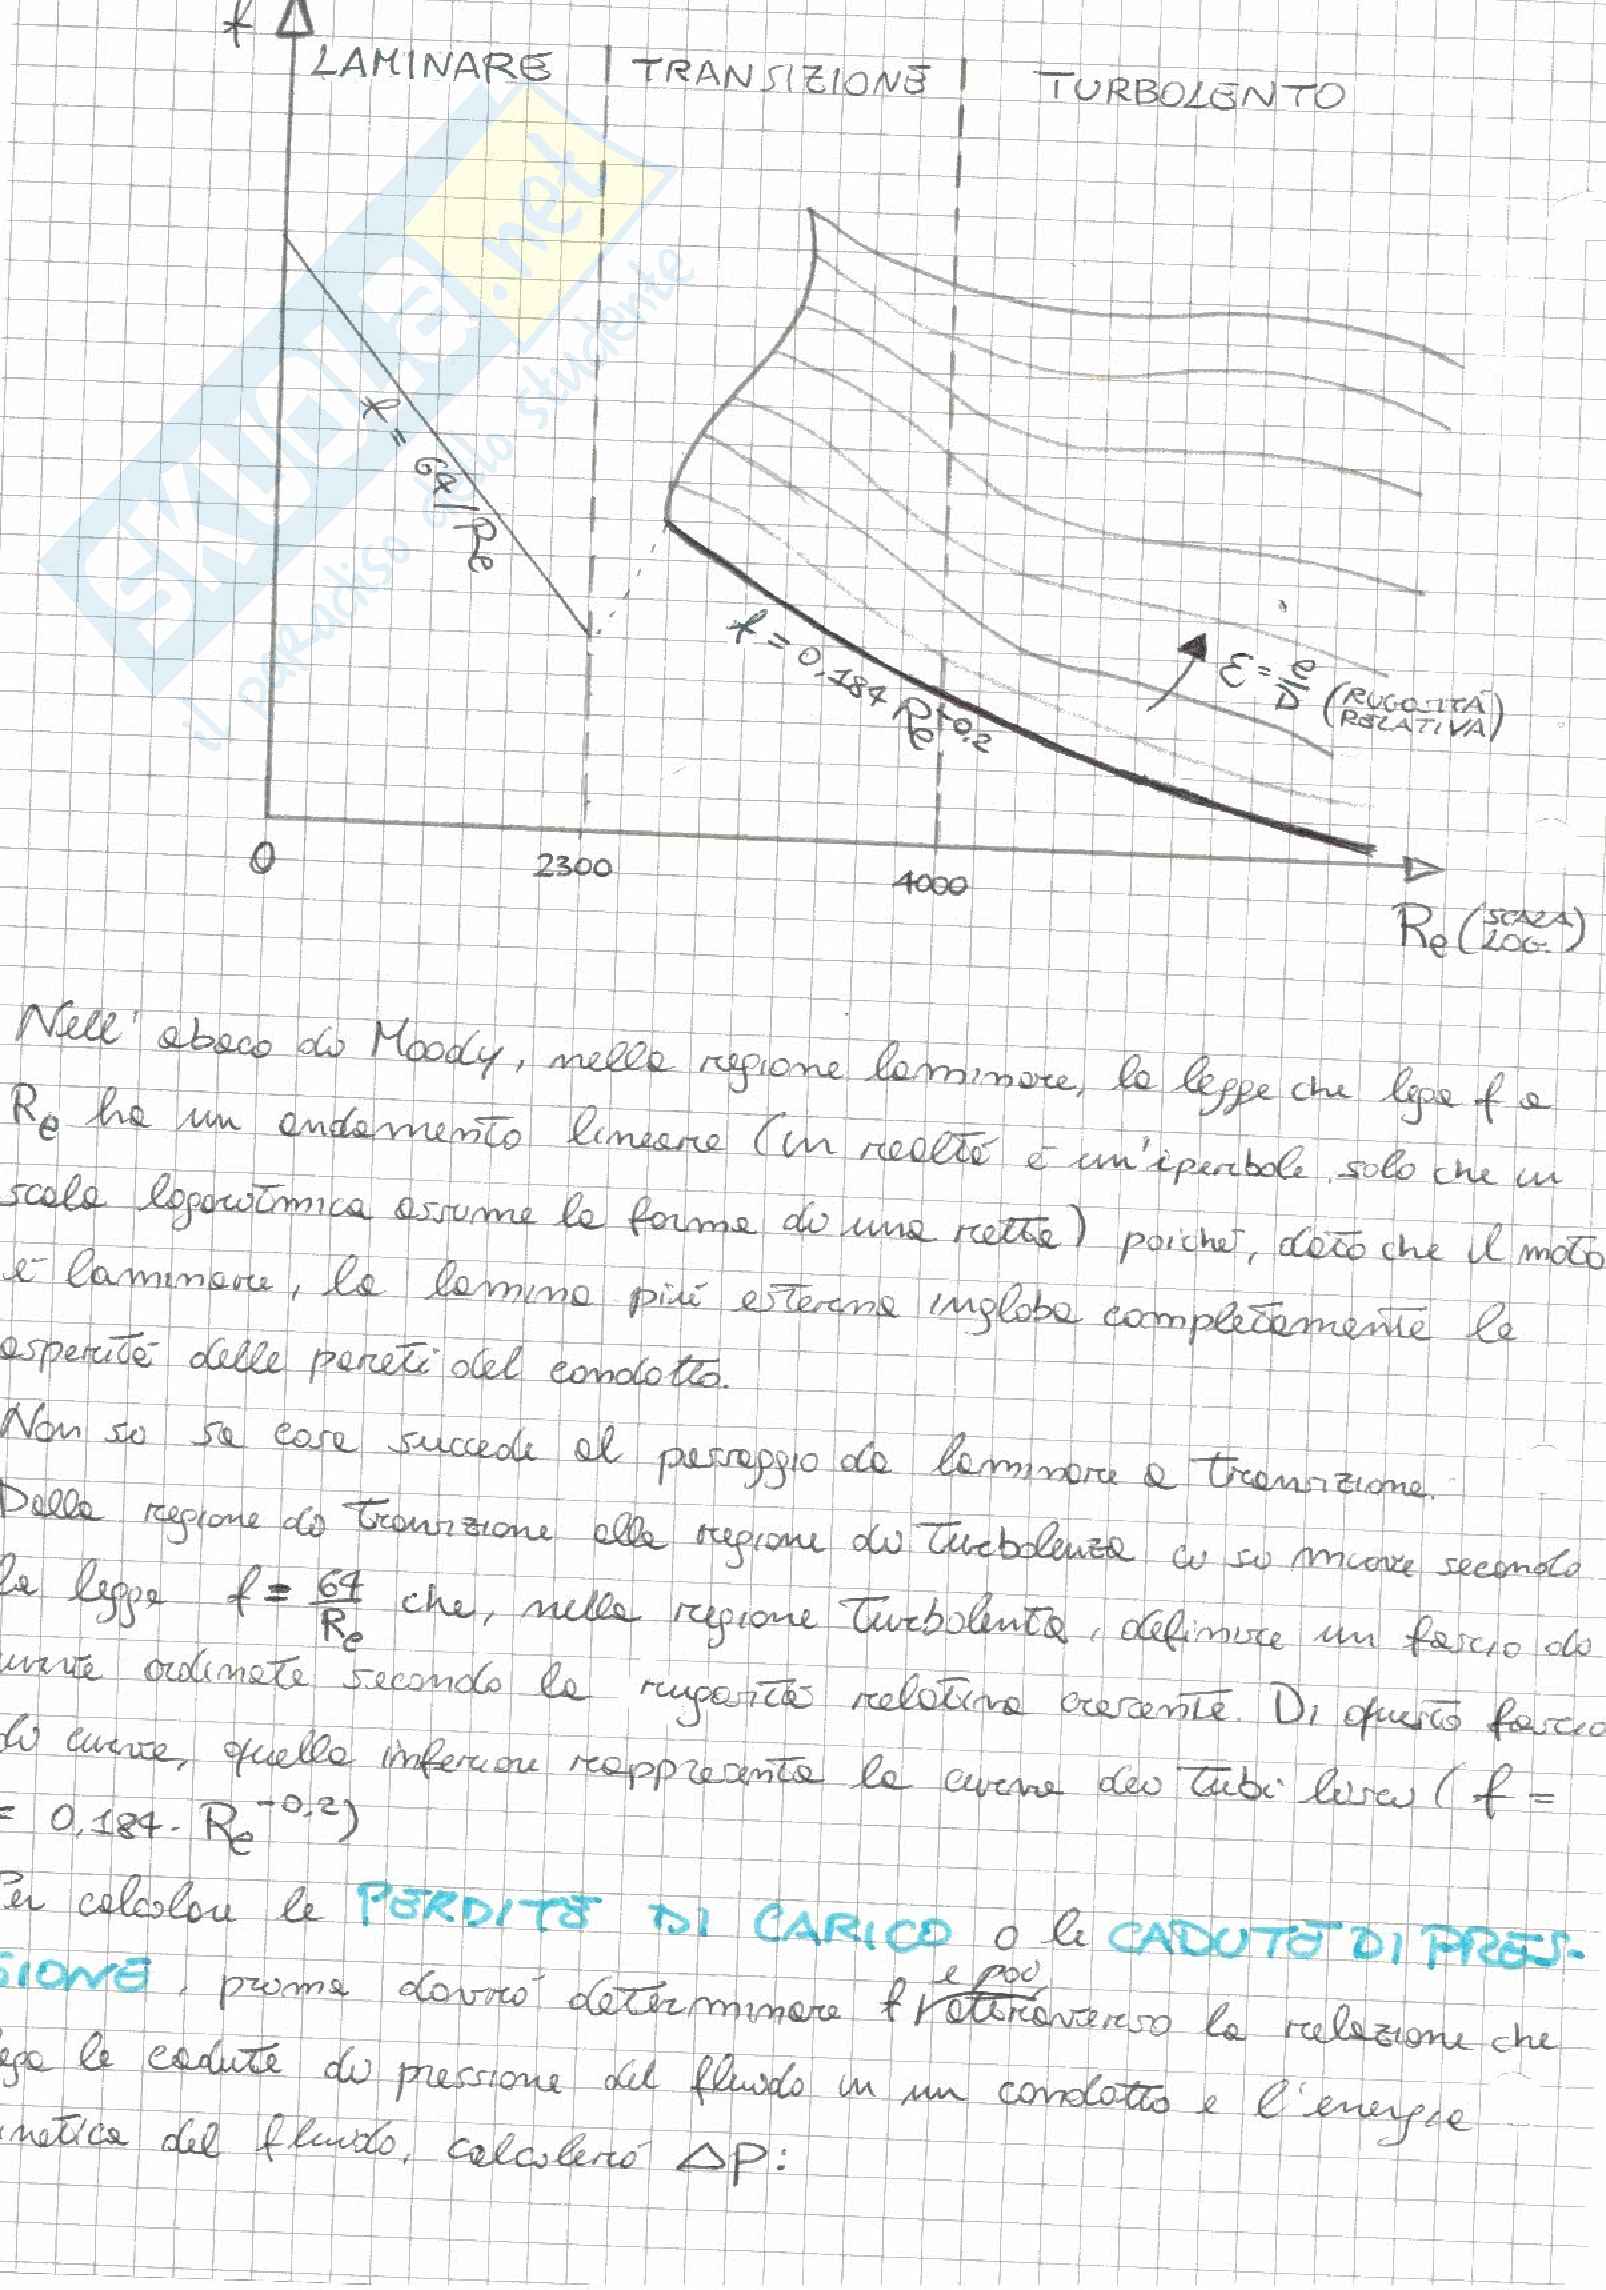 f
LAMINARE TRANSIZIONE TURBOLENTO
SKUOLA.net
il paradiso dello studente
f = 64/Re
f = 0,184 Re^-0,2
ε = e/D (RUGOSITÀ RELATIVA)
0 2300 4000
Re (SCALA LOG.)
Nell' abaco di Moody, nella regione laminare, la legge che lega f a
Re ha un andamento lineare (in realtà è un'iperbole, solo che in
scala logaritmica assume la forma di una retta) poiché, dato che il moto
è laminare, la lamina più esterna ingloba completamente le
asperità delle pareti del condotto.
Non si sa cosa succede al passaggio da laminare a transizione.
Dalla regione di transizione alla regione di turbolenza ci si muove secondo
la legge f = 64/Re che, nella regione turbolenta, definisce un fascio di
curve ordinate secondo la rugosità relativa crescente. Di questo fascio
di curve, quella inferiore rappresenta la curva dei tubi lisci (f =
= 0,184 · Re^-0,2)
Per calcolare le PERDITE DI CARICO o le CADUTE DI PRES-
SIONE, prima dovrò determinare f e poi, attraverso la relazione che
lega le cadute di pressione del fluido in un condotto e l'energia
cinetica del fluido, calcolerò ΔP: